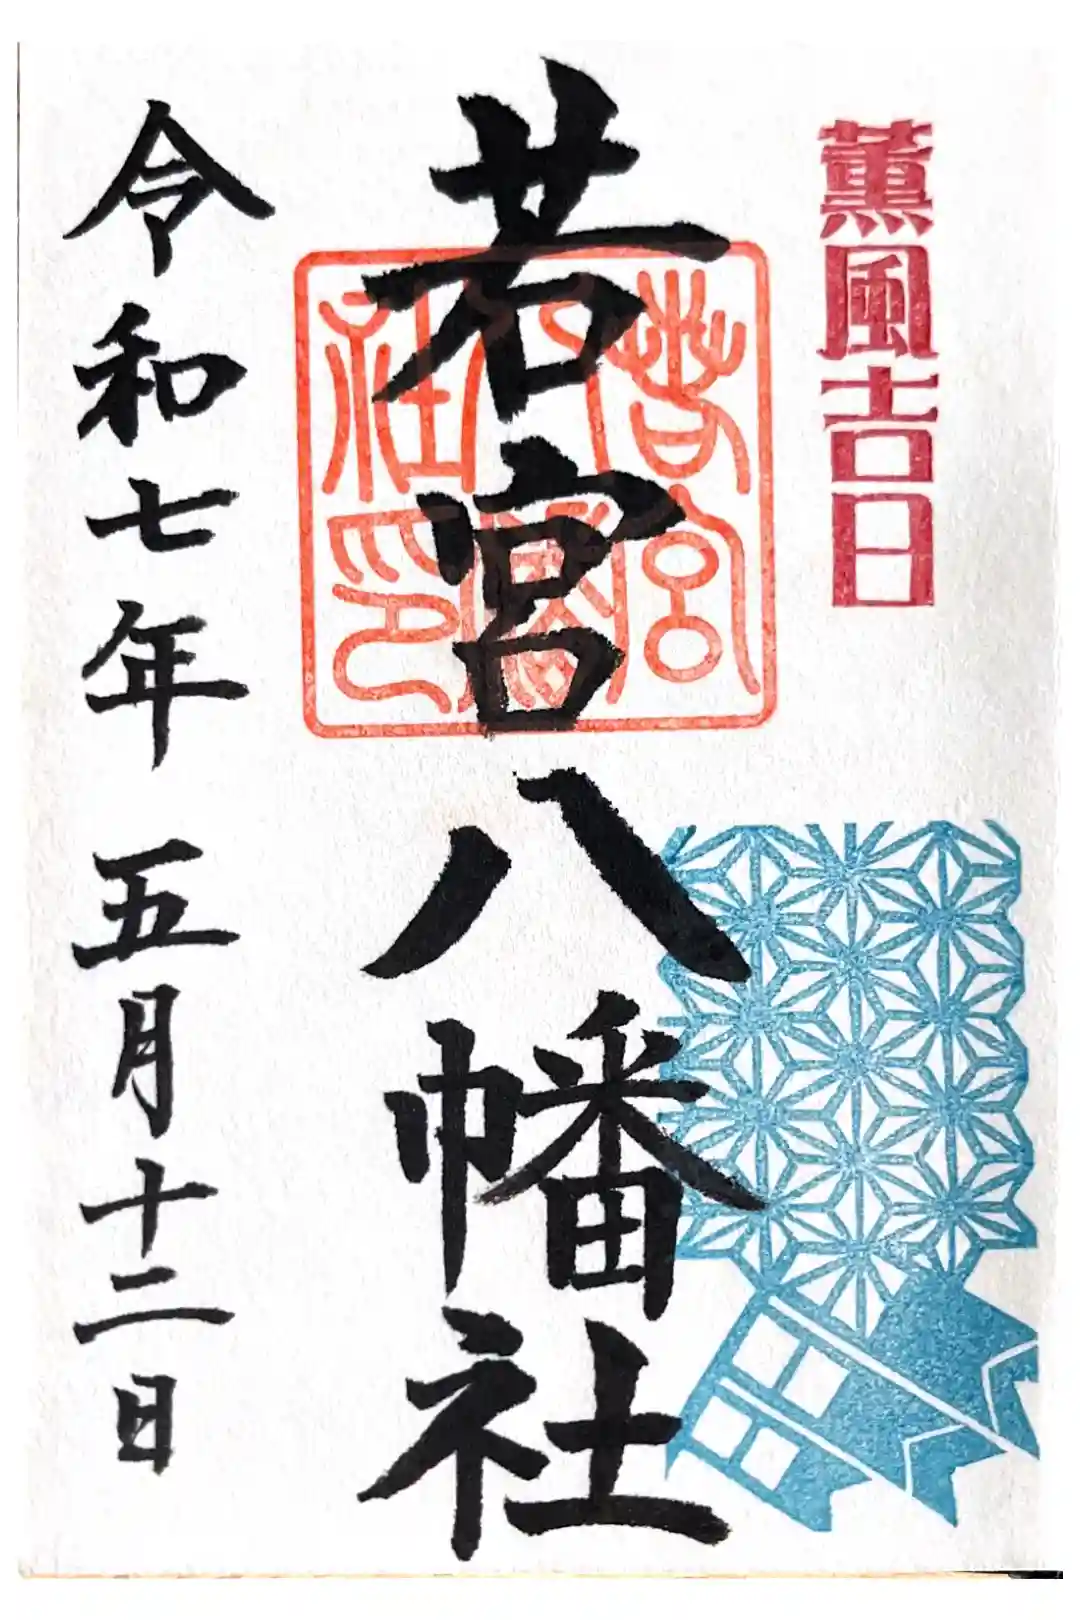 薫風吉日
若宮八幡社
若宮八幡社印
令和七年 五月十二日